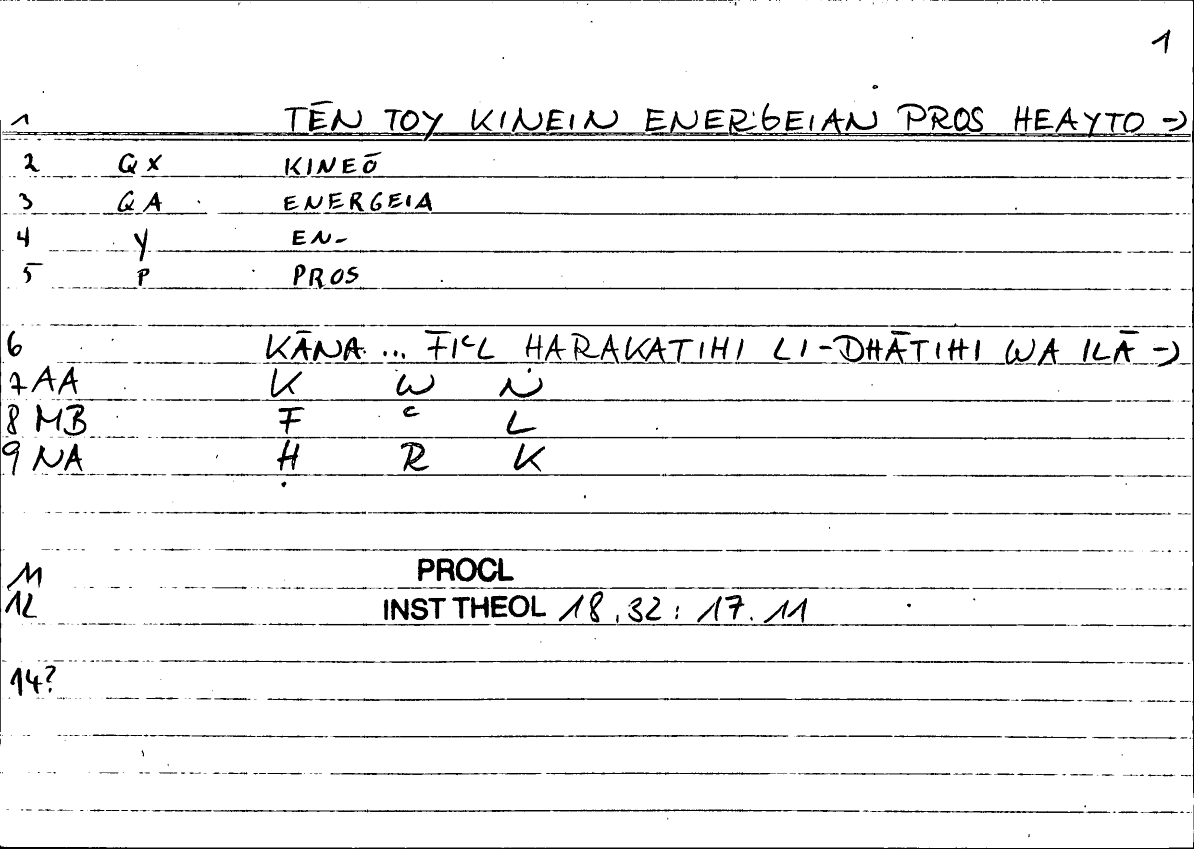 1
1 TĒN TOY KINEIN ENERGEIAN PROS HEAYTO →
2 QX KINEŌ
3 QA ENERGEIA
4 Y EN-
5 P PROS
6 KĀNA ... FIᶜL ḤARAKATIHI LI-DHĀTIHI WA ILĀ →
7 AA K W N
8 MB F ᶜ L
9 NA Ḥ R K
11 PROCL
12 INST THEOL 18.32: 17.11
14?